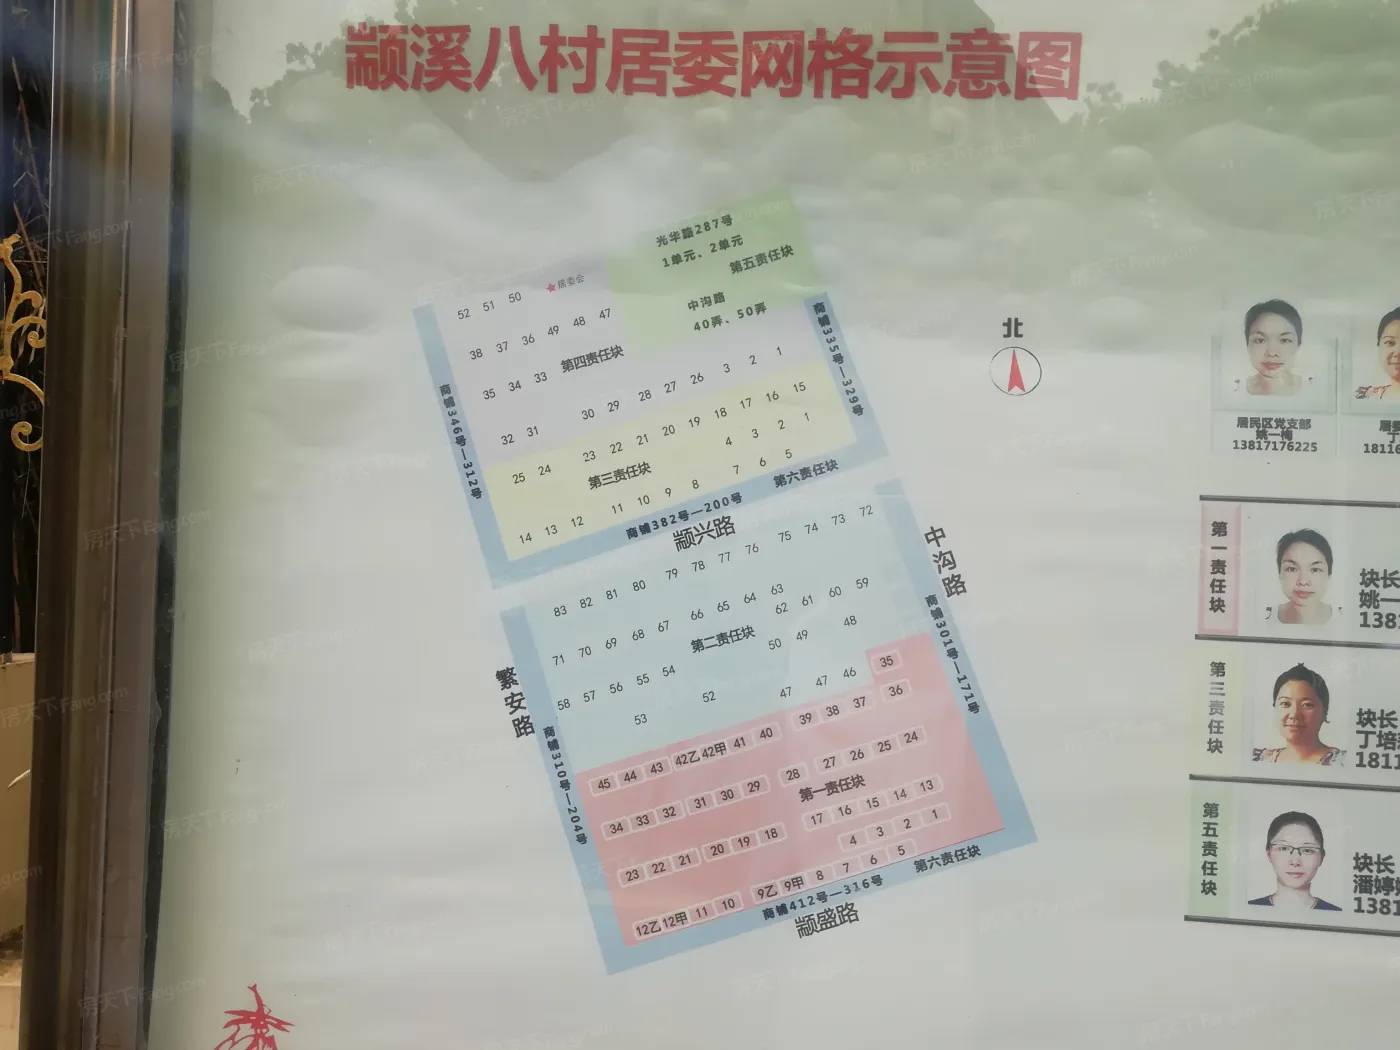 颛溪八村居委网格示意图
光华路287号
1单元、2单元
第五责任块
中沟路
40弄、50弄
★居委会
52 51 50
38 37 36 49 48 47
第四责任块
35 34 33
32 31 30 29 28 27 26 3 2 1
商铺346号—312号
商铺335号—329号
25 24 23 22 21 20 19 18 17 16 15
第三责任块
4 3 2 1
14 13 12 11 10 9 8 7 6 5
商铺382号—200号
第六责任块
颛兴路
中沟路
繁安路
83 82 81 80 79 78 77 76 75 74 73 72
71 70 69 68 67 66 65 64 63 62 61 60 59
第二责任块
58 57 56 55 54 50 49 48
53 52 47 47 46
商铺310号—204号
商铺301号—171号
35
45 44 43 42乙 42甲 41 40 39 38 37 36
34 33 32 31 30 29 28 27 26 25 24
第一责任块
23 22 21 20 19 18 17 16 15 14 13
4 3 2 1
12乙 12甲 11 10 9乙 9甲 8 7 6 5
商铺412号—316号
第六责任块
颛盛路
北
居民区党支部
姚一梅
13817176225
居
丁
1811
第一责任块
块长
姚一
1381
第三责任块
块长
丁培
1811
第五责任块
块长
潘婷
1381
房天下Fang.com